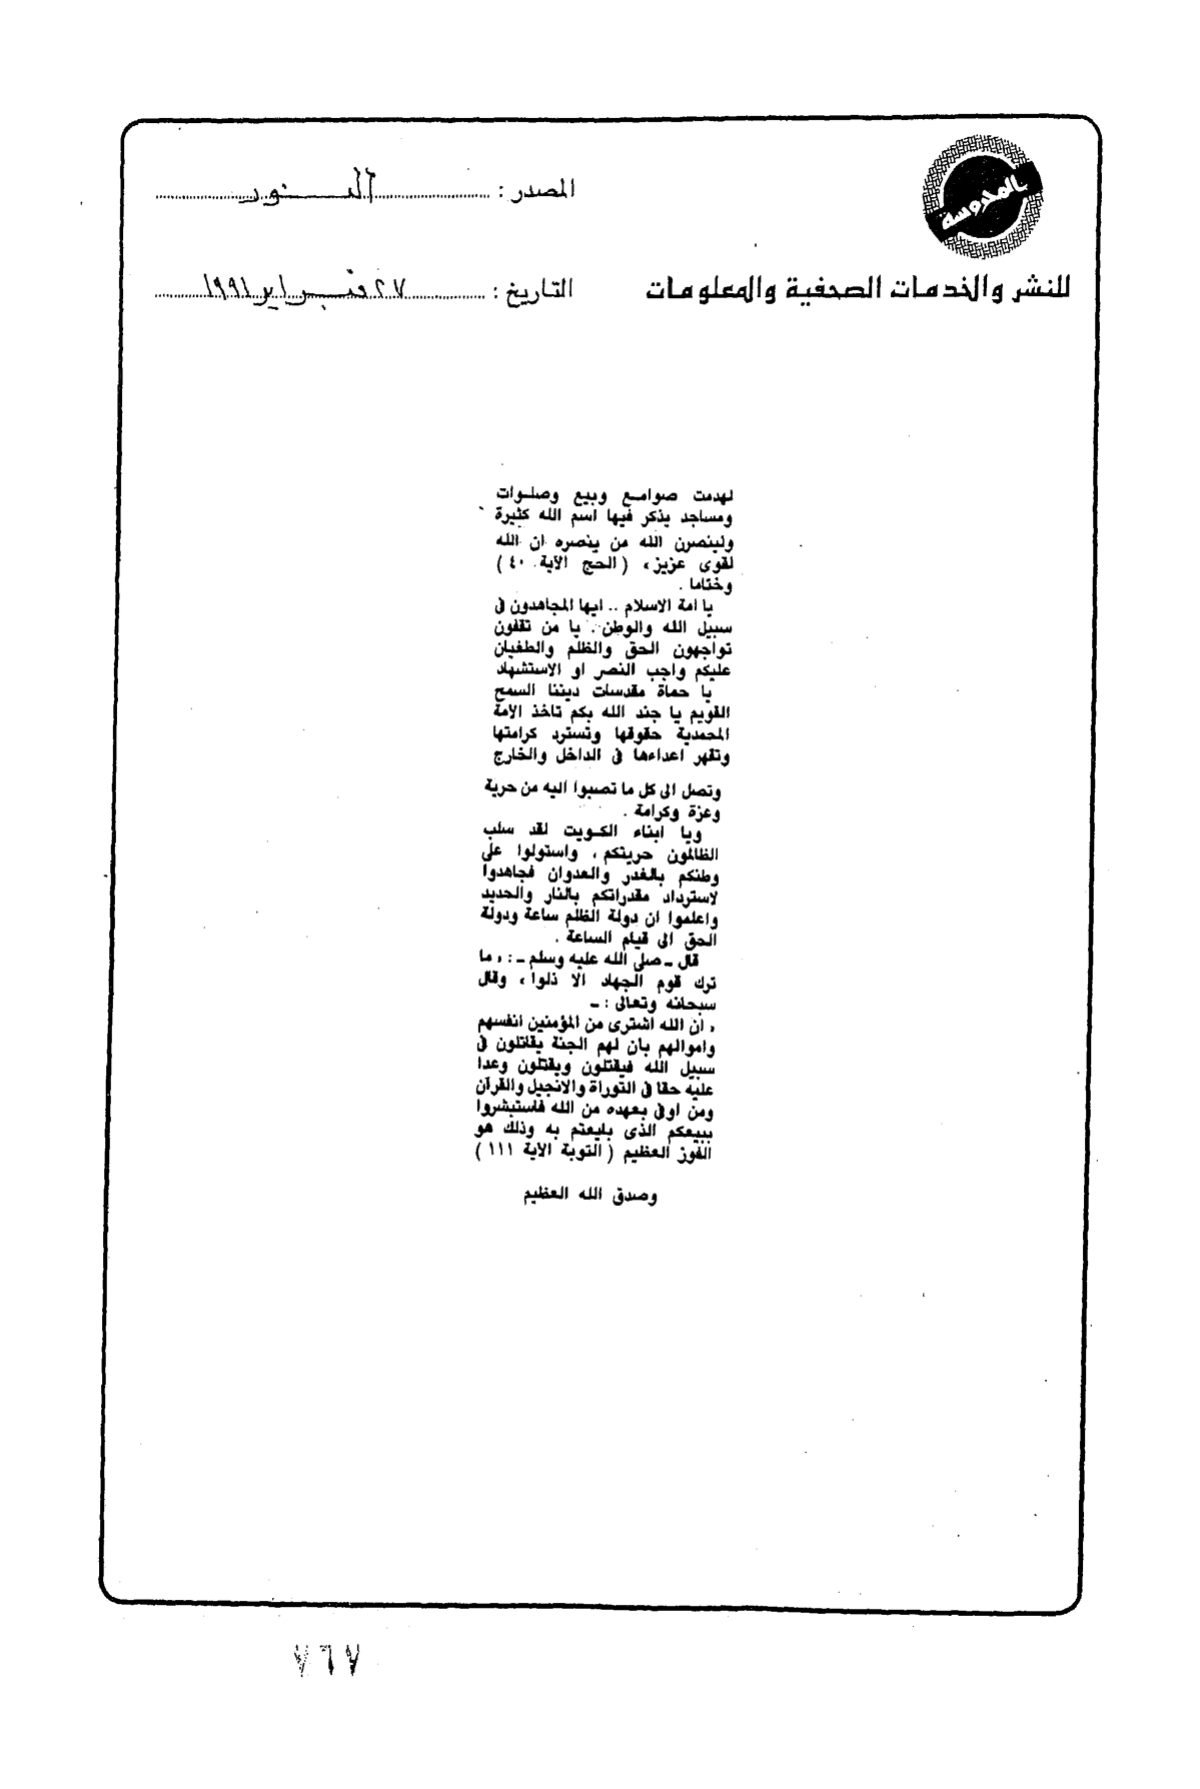 المحروسة
المصدر : النور
للنشر والخدمات الصحفية والمعلومات
التاريخ : ٢٧ فبراير ١٩٩١
لهدمت صوامع وبيع وصلوات
ومساجد يذكر فيها اسم الله كثيرة
ولينصرن الله من ينصره ان الله
لقوى عزيز ، ( الحج الآية ٤٠ )
وختاما .
يا امة الاسلام .. ايها المجاهدون فى
سبيل الله والوطن . يا من تقفون
تواجهون الحق والظلم والطغيان
عليكم واجب النصر او الاستشهاد
يا حماة مقدسات ديننا السمح
القويم يا جند الله بكم تاخذ الامة
المحمدية حقوقها وتسترد كرامتها
وتقهر اعداءها فى الداخل والخارج
وتصل الى كل ما تصبوا اليه من حرية
وعزة وكرامة .
ويا ابناء الكويت لقد سلب
الظالمون حريتكم ، واستولوا على
وطنكم بالغدر والعدوان فجاهدوا
لاسترداد مقدراتكم بالنار والحديد
واعلموا ان دولة الظلم ساعة ودولة
الحق الى قيام الساعة .
قال ـ صلى الله عليه وسلم ـ : ، ما
ترك قوم الجهاد الا ذلوا ، وقال
سبحانه وتعالى : ـ
، ان الله اشترى من المؤمنين انفسهم
واموالهم بان لهم الجنة يقاتلون فى
سبيل الله فيقتلون ويقتلون وعدا
عليه حقا فى التوراة والانجيل والقرآن
ومن اوفى بعهده من الله فاستبشروا
ببيعكم الذى بايعتم به وذلك هو
الفوز العظيم ( التوبة الاية ١١١ )
وصدق الله العظيم
٧٦٧